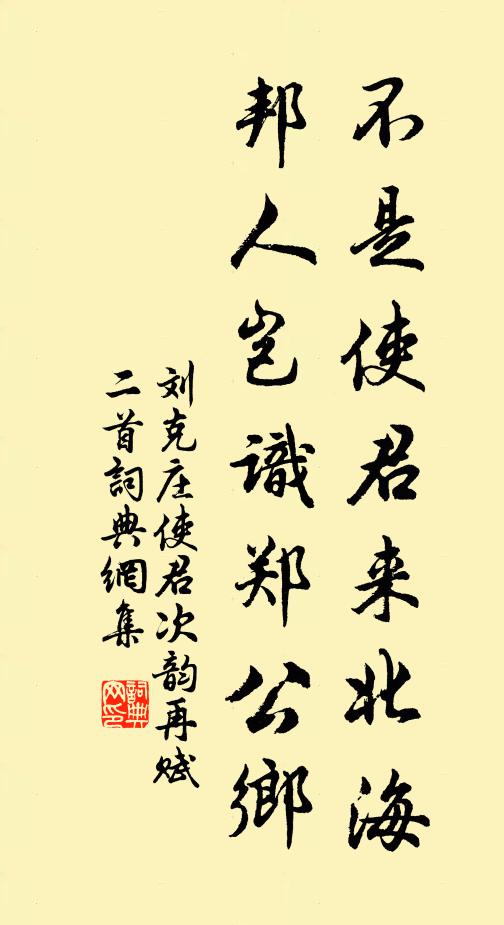 不是使君来北海
邦人岂識郑公鄉
刘克庄使君次韵再赋
二首詞典網集
詞典
网印